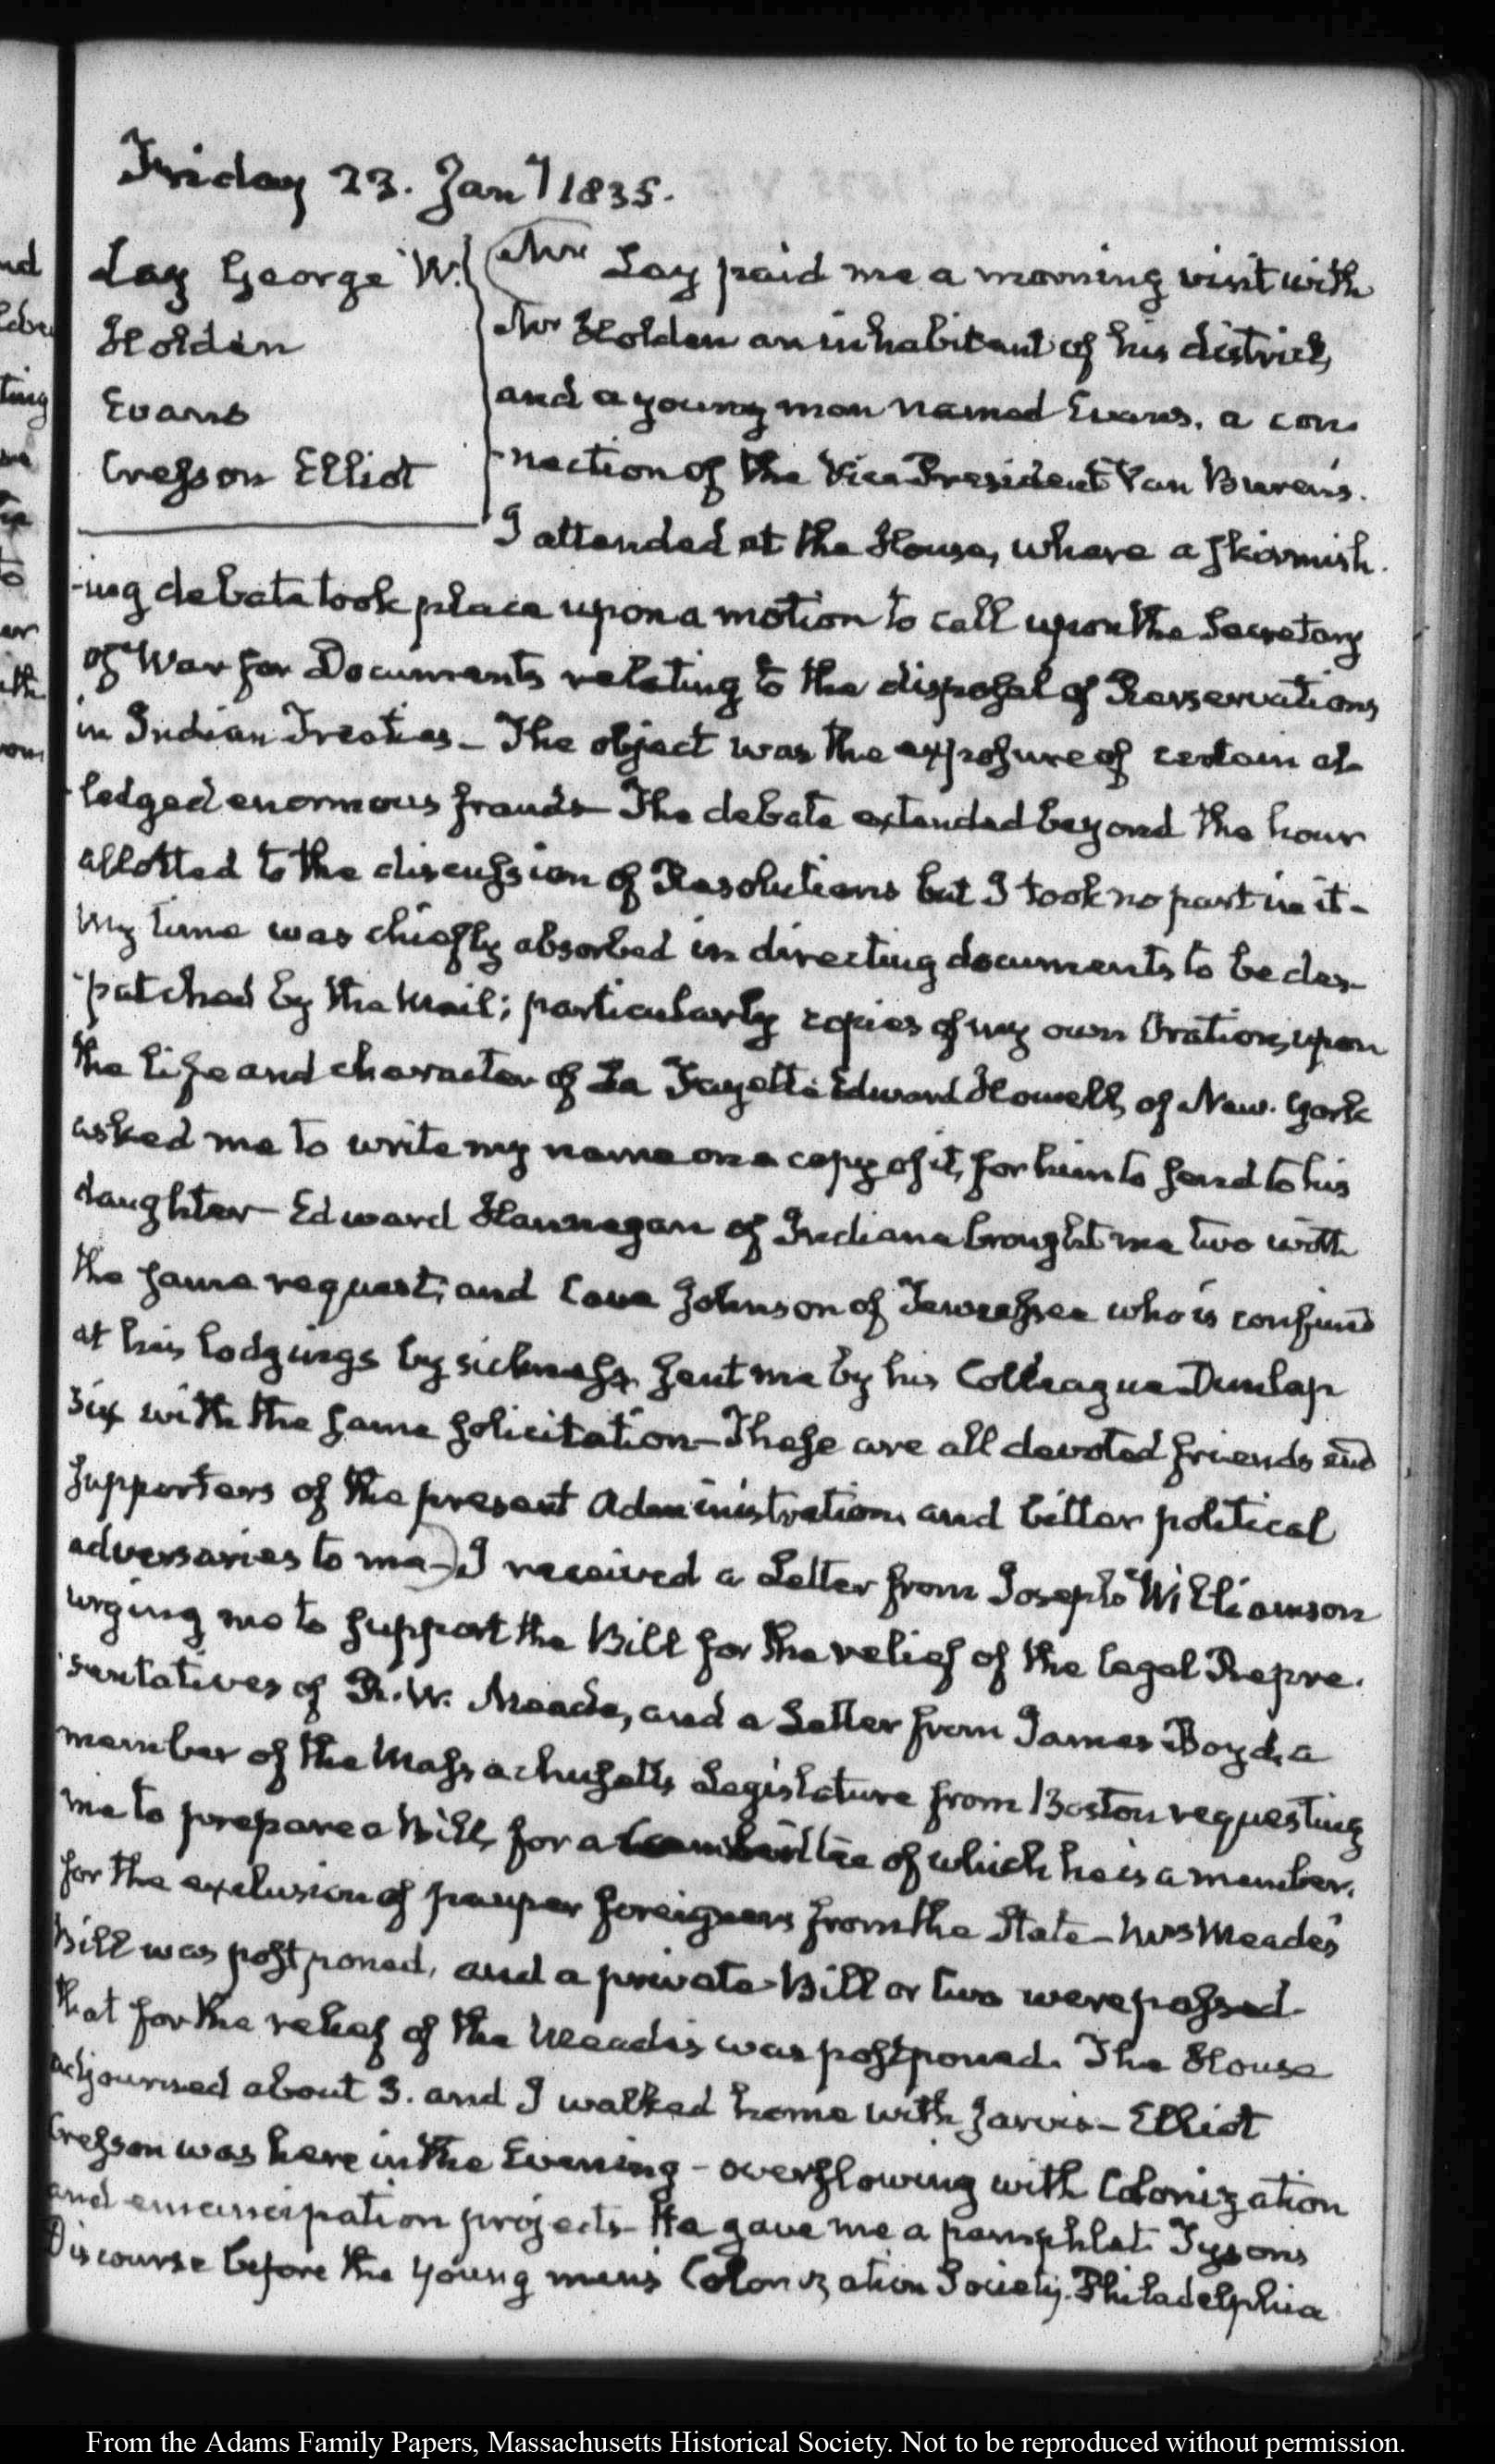 Friday 23. Jany 1835.
Lay George W.
Holden
Evans
Cresson Elliot
Mr Lay paid me a morning visit with
Mr Holden an inhabitant of his district,
and a young man named Evans, a con-
-nection of the Vice President Van Buren's.
I attended at the House, where a skirmish-
-ing debate took place upon a motion to call upon the Secretary
of War for Documents relating to the disposal of Reservations
in Indian Treaties – The object was the exposure of certain al-
-ledged enormous frauds – The debate extended beyond the hour
allotted to the discussion of Resolutions but I took no part in it –
My time was chiefly absorbed in directing documents to be des-
-patched by the Mail; particularly copies of my own Oration, upon
the life and character of La Fayette Edward Howell, of New-York
asked me to write my name on a copy of it, for him to send to his
daughter – Edward Hannegan of Indiana brought me two with
the same request; and Cave Johnson of Tennessee who is confined
at his lodgings by sickness, sent me by his Colleague Dunlap
six with the same solicitation – These are all devoted friends and
supporters of the present Administration, and bitter political
adversaries to me –) I received a Letter from Joseph Williamson
urging me to support the Bill for the relief of the legal Repre-
-sentatives of R. W. Meade, and a Letter from James Boyd, a
member of the Massachusetts Legislature from Boston requesting
me to prepare a Bill, for a Committee of which he is a member,
for the exclusion of pauper foreigners from the State – Mrs Meade's
Bill was postponed, and a private Bill or two were passed
that for the relief of the Meades was postponed. The House
adjourned about 3. and I walked home with Jarvis – Elliot
Cresson was here in the Evening – overflowing with Colonization
and emancipation projects – He gave me a pamphlet Tysons
Discourse before the young men's Colonization Society. Philadelphia
From the Adams Family Papers, Massachusetts Historical Society. Not to be reproduced without permission.